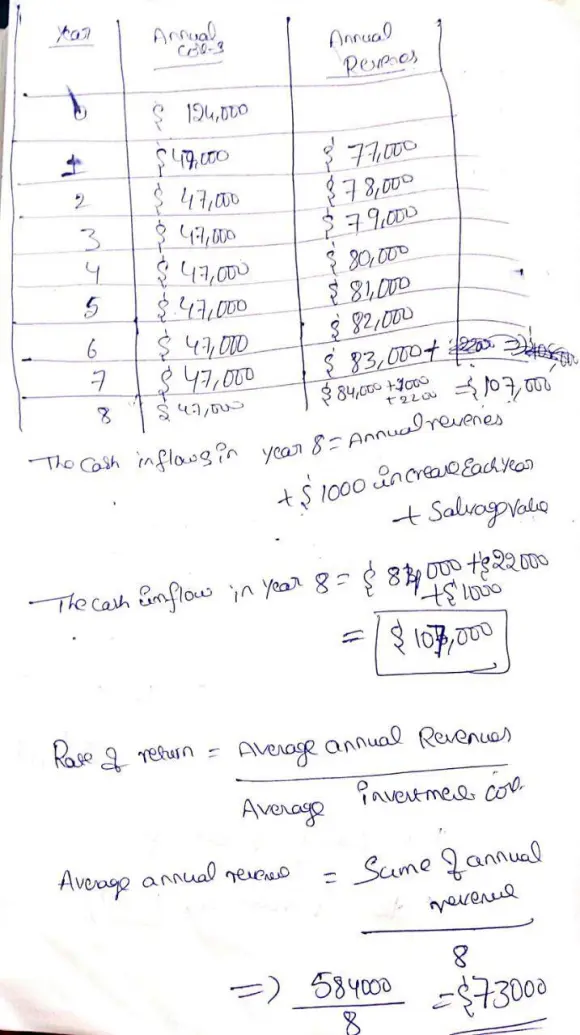 Year Annual Cost-s Annual Revenues
0 $ 124,000
1 $ 47,000 $ 77,000
2 $ 47,000 $ 78,000
3 $ 47,000 $ 79,000
4 $ 47,000 $ 80,000
5 $ 47,000 $ 81,000
6 $ 47,000 $ 82,000
7 $ 47,000 $ 83,000 +
8 $ 47,000 $ 84,000 +1000 + 2200 = $ 107,000
The Cash inflows in year 8 = Annual revenies
+ $ 1000 increase Each year
+ Salvage Value
The cash inflow in year 8 = $ 84,000 + $22000
+ $ 1000
= $ 107,000
Rate of return = Average annual Revenues
Average investment cost
Average annual revenue = Sume of annual
revenue
8
=) 584000 = $73000
8